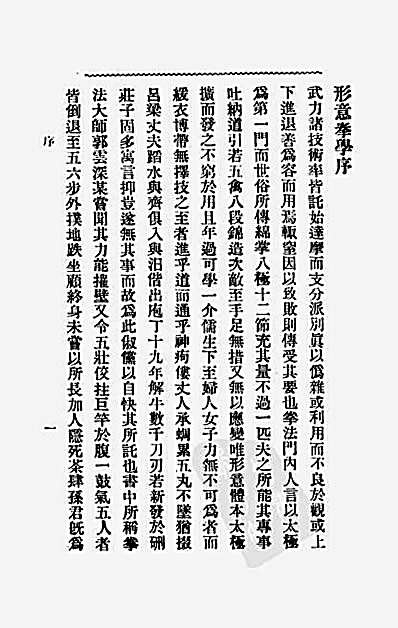 形意拳學序
武力諸技術率皆託始達摩而支分派別眞以僞雜或利用而不良於觀或上
下進退善爲容而用焉輒窒因以致敗則傳受其要也拳法門內人言以太極
爲第一門而世俗所傳綿掌八極十二節充其量不過一匹夫之所能其專事
吐納道引若五禽八段錦造次敵至手足無措又無以應變唯形意體本太極
擴而發之不窮於用且年過可學一介儒生下至婦人女子力無不可爲者而
緩衣博帶無擇技之至者進乎道而通乎神痀僂丈人承蜩累五丸不墜猶掇
呂梁丈夫蹈水與齊俱入與汨偕出庖丁十九年解牛數千刀刃若新發於硎
莊子固多寓言抑豈遂無其事而故爲此俶儻以自快其所託也書中所稱拳
法大師郭雲深某嘗聞其力能撞壁又令五壯佼拄巨竿於腹一鼓氣五人者
皆倒退至五六步外撲地跌坐顧終身未嘗以所長加人隱死茶肆孫君旣爲
序
一